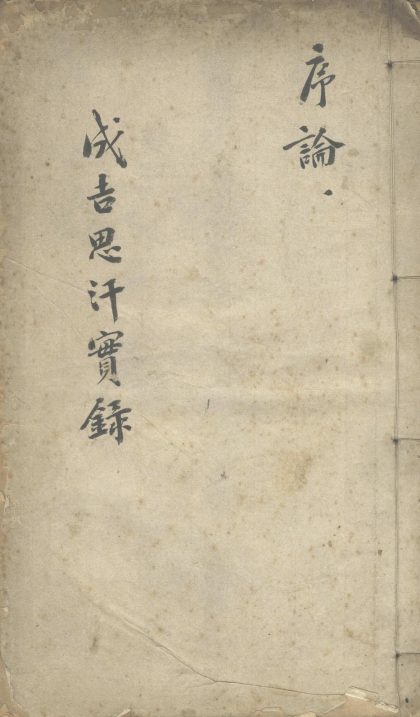 序論、
成吉思汗實錄